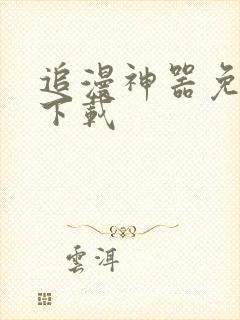 追漫神器免
下載
雲洱